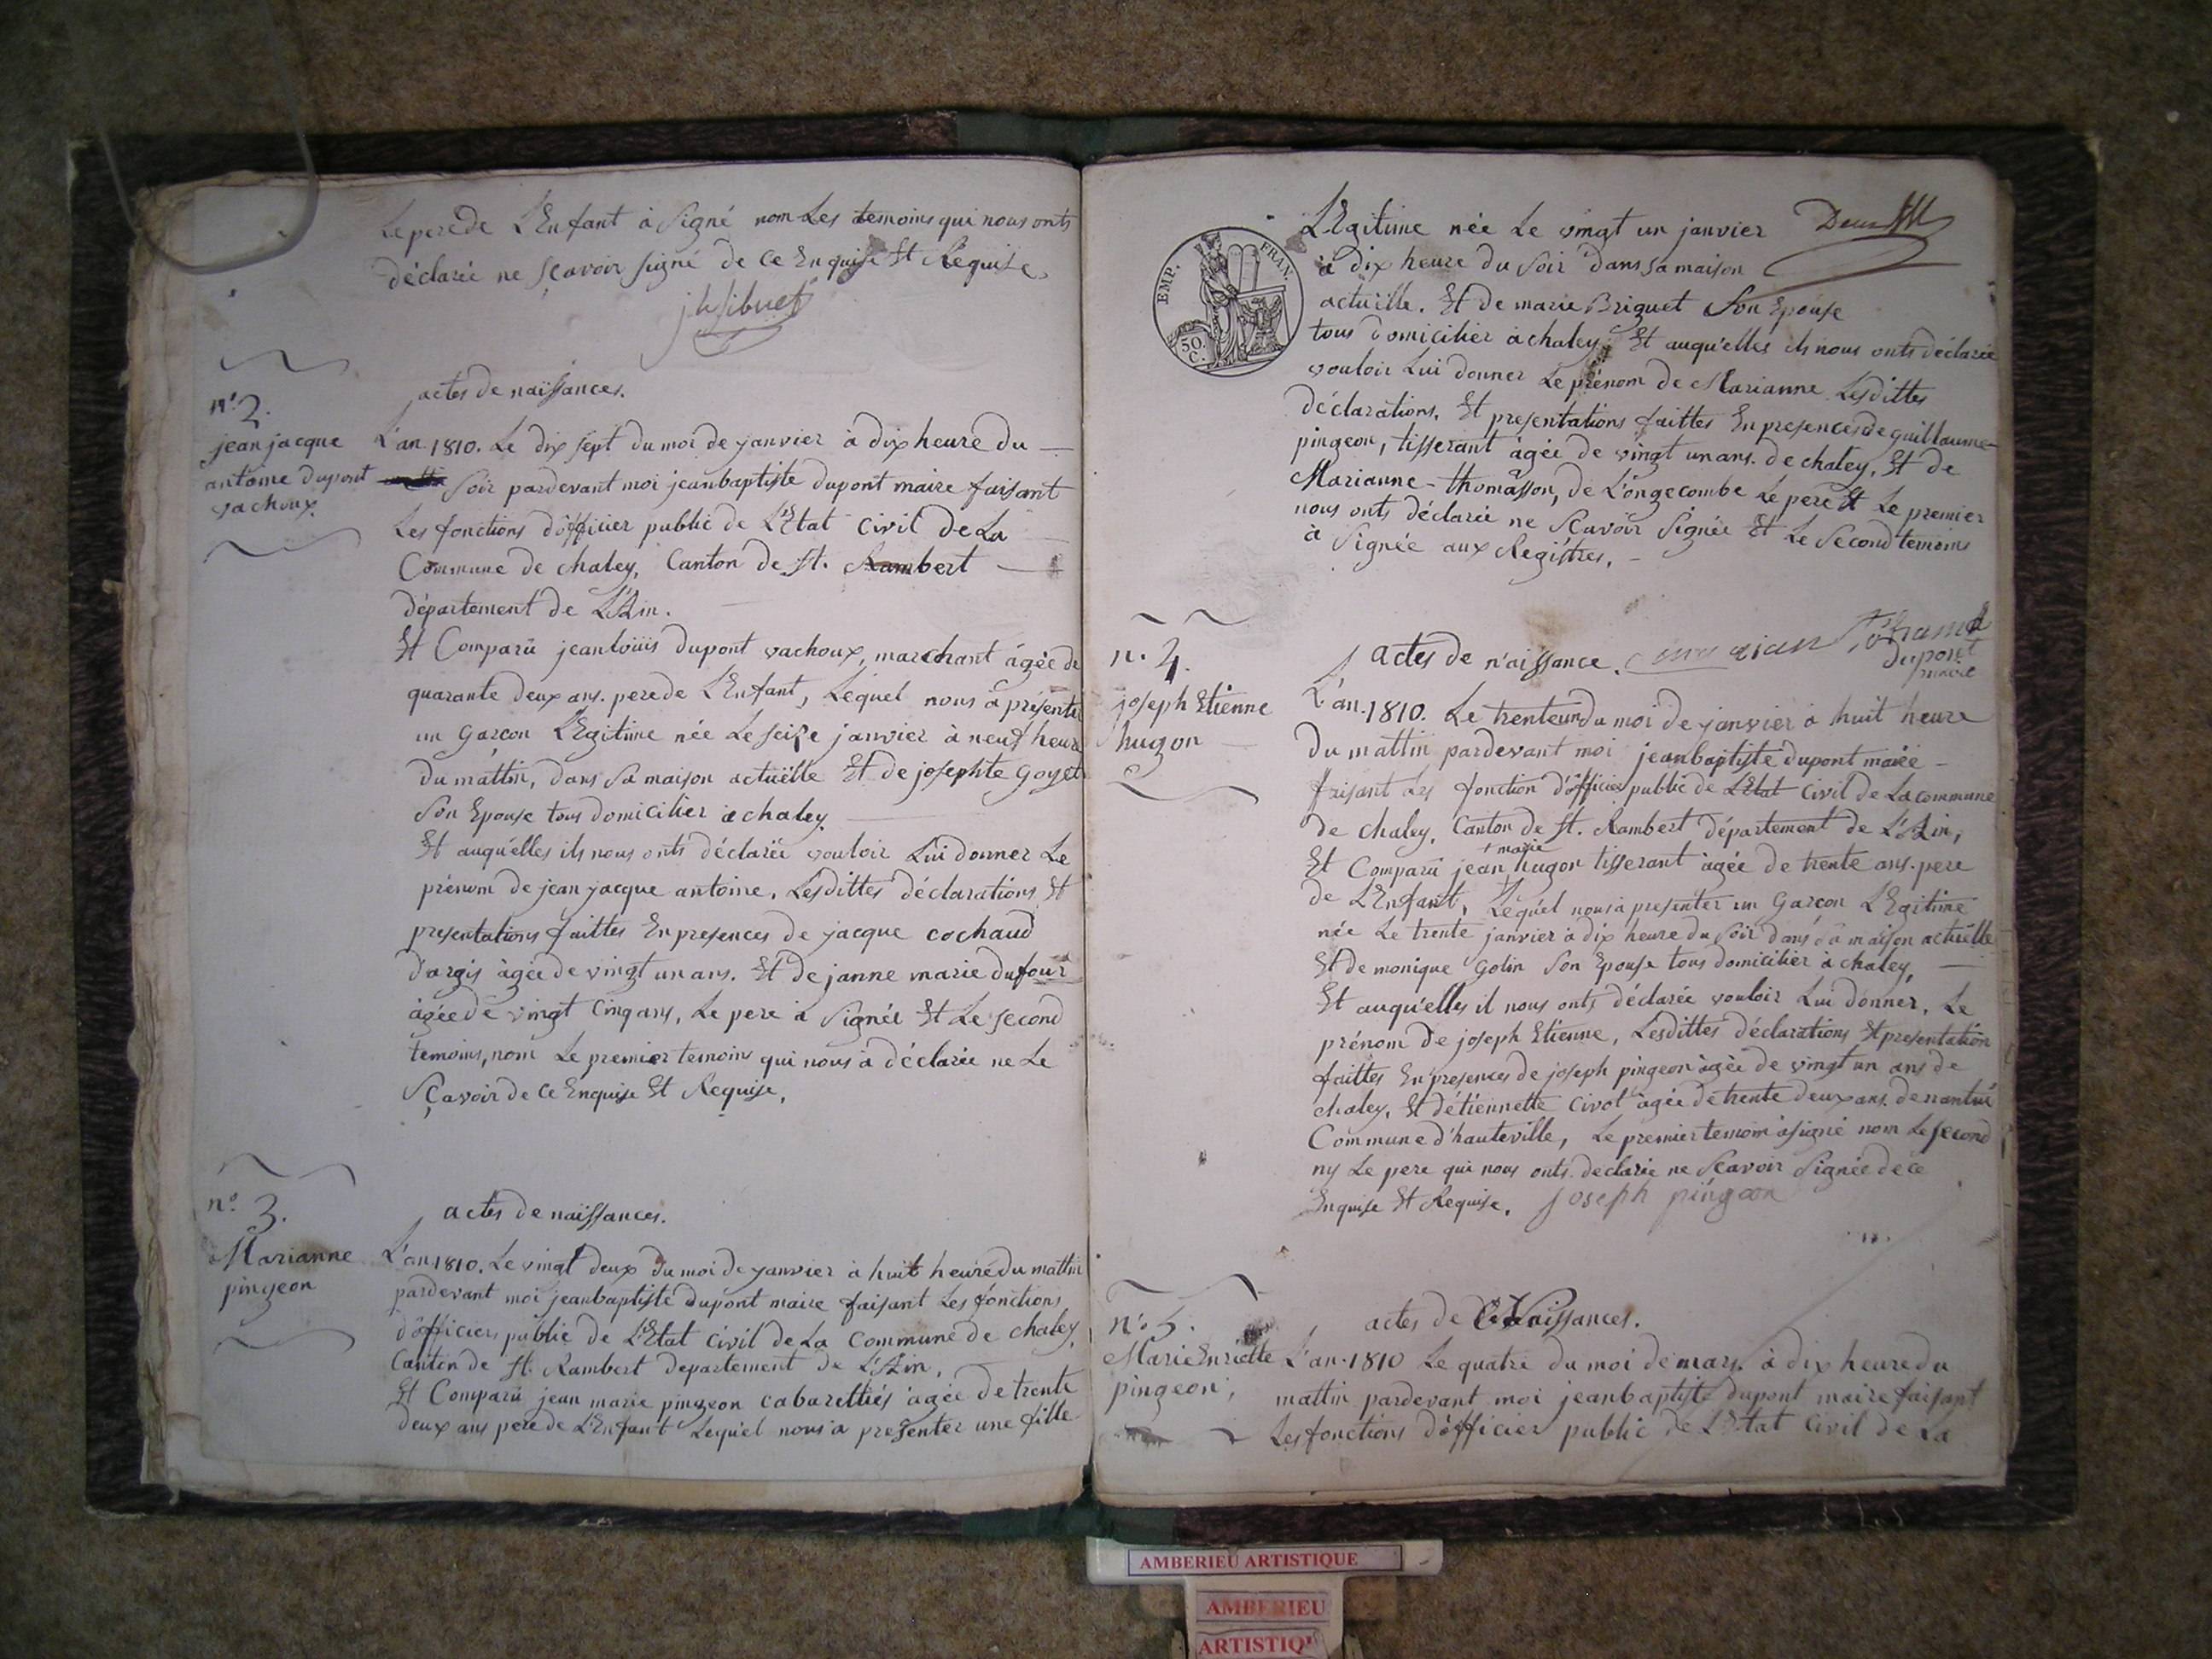 Le pere de L'Enfant à Signé nom Les temoins qui nous onts
déclarée ne sçavoir signé de ce Enquise Et Requise
jh sibuet
n° 2.
jean jacque
antoine dupont
vachoux
actes de naissances.
L'an 1810. Le dix sept du moi de janvier à dix heure du
Soir pardevant moi jeanbaptiste dupont maire faisant
Les fonctions d'officier public de L'Etat civil de La
Commune de chaley, Canton de St. Rambert
département de L'Ain.
Et Comparû jean louis dupont vachoux, marchant àgée de
quarante deux ans. pere de L'Enfant, Lequel nous à présenter
un Garcon LEgitime née Le seize janvier à neuf heure
du mattin, dans sa maison actuëlle Et de josephte Goyet
Son Epouse tous domicilier à chaley.
Et auqu'elles ils nous onts déclarée vouloir Lui donner Le
prénom de jean jacque antoine. Lesdittes déclarations Et
presentations faittes En presences de jacque cochaud
d'argis àgée de vingt un ans. Et de janne marie dufour
àgée de vingt cinq ans, Le pere à Signée Et Le second
temoins, nom Le premier temoins qui nous à déclarée ne Le
Sçavoir de ce Enquise Et Requise,
n° 3.
Marianne
pingeon
actes de naissances.
L'an 1810. Le vingt deux du moi de janvier à huit heure du mattin
pardevant moi jeanbaptiste dupont maire faisant Les fonctions
d'officiers public de L'Etat civil de La Commune de chaley,
Canton de St. Rambert departement de L'Ain,
Et Comparû jean marie pingeon cabarettiés àgée de trente
deux ans pere de L'Enfant Lequel nous à presenter une fille
EMP. FRAN.
50.
C.
LEgitime née Le vingt un janvier
à dix heure du Soir dans sa maison
actuëlle. Et de marie Briguet Son Epouse
tous domicilier à chaley. Et auqu'elles ils nous onts déclarée
vouloir Lui donner Le prénom de Marianne Lesdittes
déclarations, Et presentations faittes En presences de guillaume
pingeon, tisserant àgée de vingt un ans. de chaley, Et de
Marianne-thomasson, de L'ongecombe Le pere Et Le premier
nous onts déclarée ne Sçavoir Signée Et Le Second temoins
à Signée aux Registres.
dupont
maire
n. 4.
joseph Etienne
hugon
actes de n'aissance.
L'an. 1810. Le trenteun du moi de janvier à huit heure
du mattin pardevant moi jeanbaptiste dupont maiée
faisant Les fonction d'officier public de L'Etat civil de La commune
de chaley, Canton de St. Rambert département de L'Ain,
+ marie
Et Comparû jean hugon tisserant àgée de trente ans. pere
de L'Enfant, Lequel nous à presenter un Garcon LEgitime
née Le trente janvier à dix heure du Soir dans sa maison actuëlle
Et de monique Golin Son Epouse tous domicilier à chaley,
Et auqu'elles il nous onts déclarée vouloir Lui donner, Le
prénom de joseph Etienne, Lesdittes déclarations Et presentation
faittes En presences de joseph pingeon àgée de vingt un ans de
chaley, Et d'étiennette civot àgée de trente deux ans. de nantui
Commune d'hauteville, Le premier temoin à signé nom Le second
ny Le pere qui nous onts declarée ne Scavoir Signée de ce
Enquise Et Requise, joseph pingeon
n° 5.
Marie Enriette
pingeon,
actes de Naissances.
L'an. 1810 Le quatre du moi de mars. à dix heure du
mattin pardevant moi jeanbaptiste dupont maire faisant
Les fonctions d'officier public de L'Etat Civil de La
AMBERIEU ARTISTIQUE
AMBERIEU